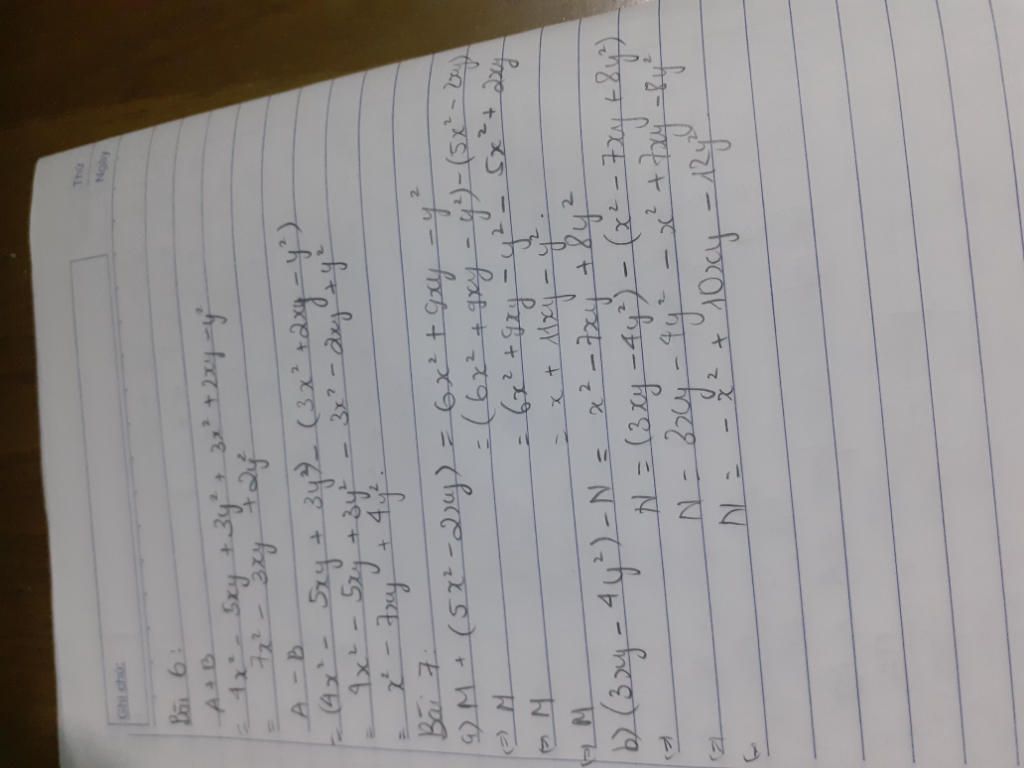 Ghi chú:
Thứ
Ngày
Bài 6:
A + B
= 4x² - 5xy + 3y² + 3x² + 2xy - y²
= 7x² - 3xy + 2y²
A - B
= (4x² - 5xy + 3y²) - (3x² + 2xy - y²)
= 4x² - 5xy + 3y² - 3x² - 2xy + y²
= x² - 7xy + 4y².
Bài 7.
a) M + (5x² - 2xy) = 6x² + 9xy - y²
(=) M = (6x² + 9xy - y²) - (5x² - 2xy)
(=) M = 6x² + 9xy - y² - 5x² + 2xy
(=) M = x + 11xy - y².
b) (3xy - 4y²) - N = x² - 7xy + 8y²
(=) N = (3xy - 4y²) - (x² - 7xy + 8y²)
(=) N = 3xy - 4y² - x² + 7xy - 8y²
(=) N = - x² + 10xy - 12y²